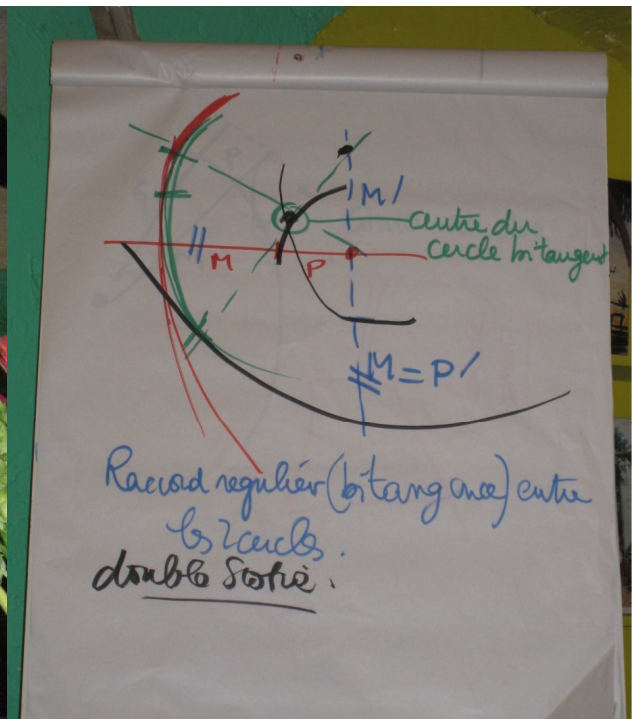 M'
centre du
cercle bitangent
M
P
M = P'
Raccord regulier (bitangence) entre
les 2 cercles.
double Scotie.